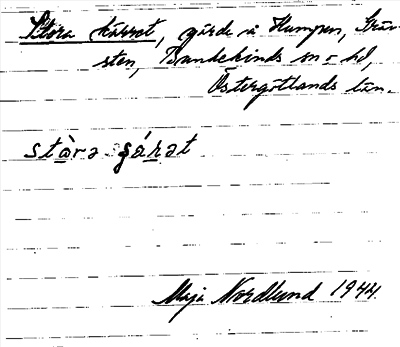 Stora kärret, gärde å Humpen, Grän-
sten, Bankekinds sn o hd,
Östergötlands län.
stàra gárat
Maja Nordlund 1944.